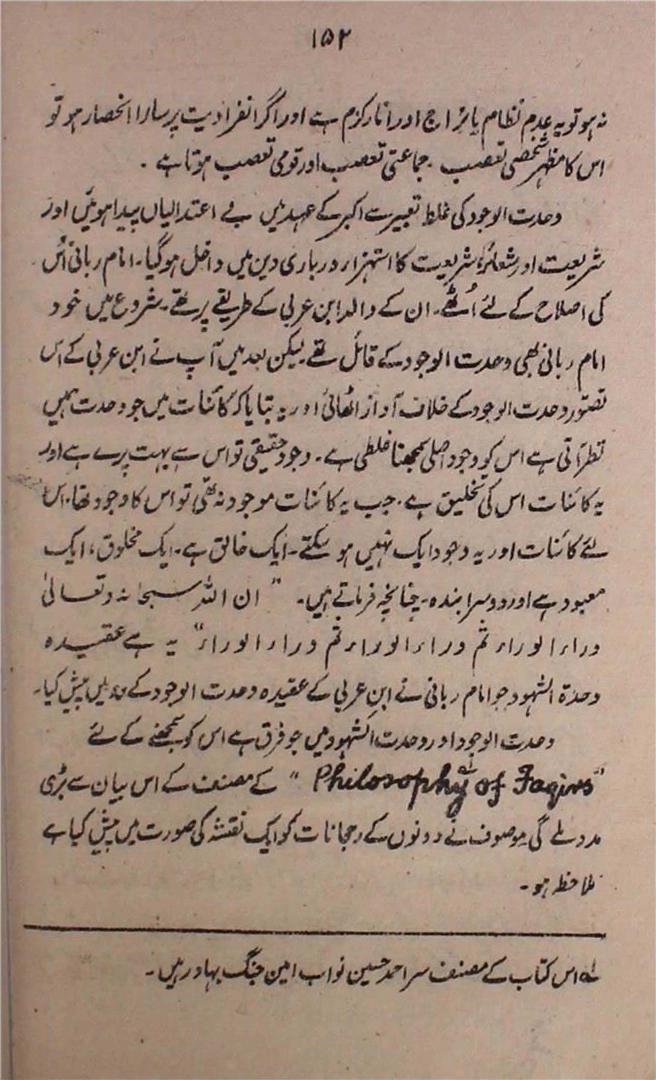 ۱۵۲
نہ ہو تو یہ عدم نظام یا نراج اور انارکزم ہے اور اگر انفرادیت پر سارا انحصار ہو تو
اس کا مظہر شخصی تعصب ۔ جماعتی تعصب اور قومی تعصب ہوتا ہے ۔
وحدت الوجود کی غلط تعبیر سے اکبر کے عہد میں بے اعتدالیاں پیدا ہوئیں اور
شریعت اور شعائر شریعت کا استہزار درباری دین میں داخل ہو گیا۔ امام ربانی اُس
کی اصلاح کے لئے اُٹھے۔ ان کے والد ابن عربی کے طریقے پر تھے۔ شروع میں خود
امام ربانی بھی وحدت الوجود کے قائل تھے لیکن بعد میں آپ نے ابن عربی کے اس
تصور وحدت الوجود کے خلاف آواز اٹھائی اور یہ بتایا کہ کائنات میں جو وحدت ہمیں
نظر آتی ہے اس کو وجود اصلی سمجھنا غلطی ہے۔ وجود حقیقی تو اس سے بہت پرے ہے اور
یہ کائنات اس کی تخلیق ہے۔ جب یہ کائنات موجود نہ تھی تو اس کا وجود تھا۔ اس
لئے کائنات اور یہ وجود ایک نہیں ہو سکتے۔ ایک خالق ہے۔ ایک مخلوق، ایک
معبود ہے اور دوسرا بندہ۔ چنانچہ فرماتے ہیں۔ "ان اللہ سبحانہ وتعالیٰ
وراء الوراء ثم وراء الوراء ثم وراء الوراء" یہ ہے عقیدہ
وحدۃ الشہود جو امام ربانی نے ابن عربی کے عقیدہ وحدت الوجود کے مقابل پیش کیا۔
وحدت الوجود اور وحدت الشہود میں جو فرق ہے اس کو سمجھنے کے لئے
"Philosophy of Faqirs" کے مصنف کے اس بیان سے بڑی
مدد ملے گی موصوف نے دونوں کے رجحانات کو ایک نقشہ کی صورت میں پیش کیا ہے
ملاحظہ ہو۔
لہ اس کتاب کے مصنف سر احمد حسین نواب امین جنگ بہادر ہیں۔